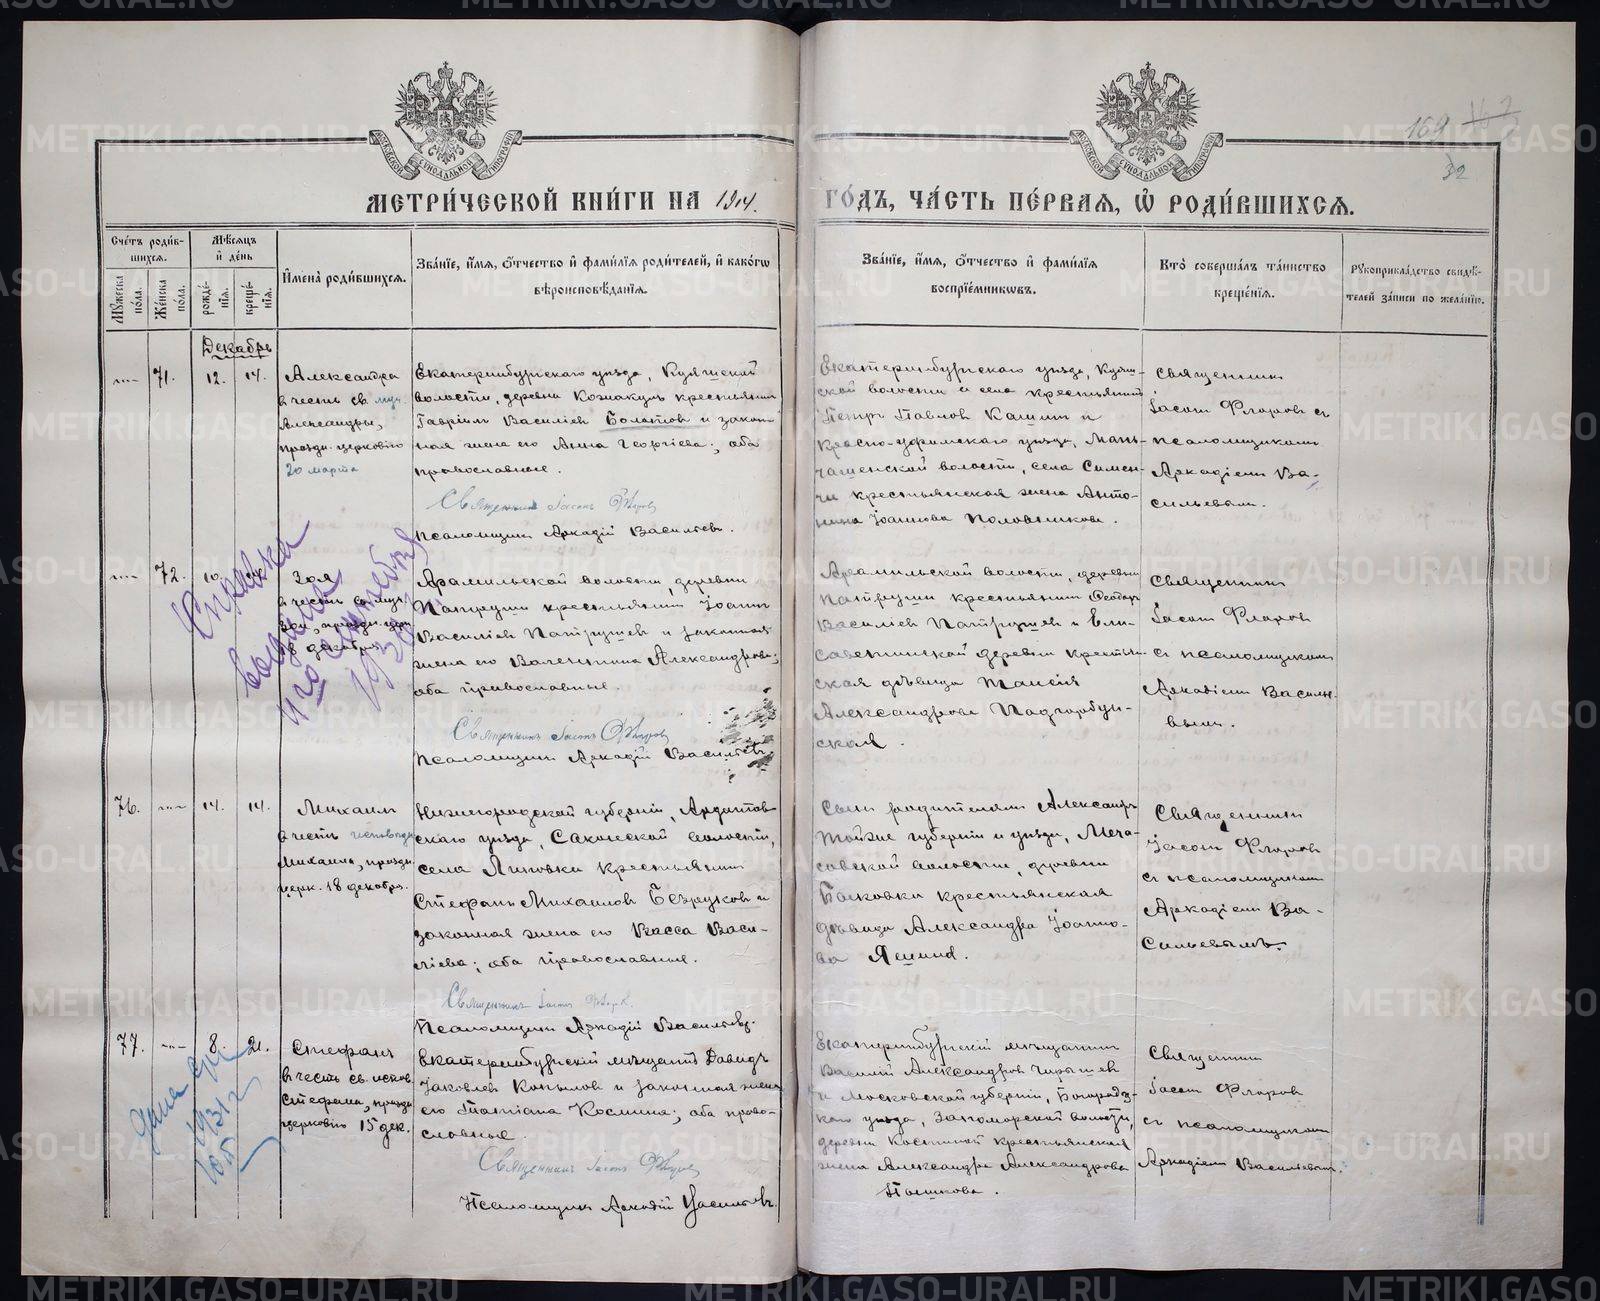 169
32
МОСКОВСКОЙ СѴНОДАЛЬНОЙ ТИПОГРАФІИ
МОСКОВСКОЙ СѴНОДАЛЬНОЙ ТИПОГРАФІИ
МЕТРИ́ЧЕСКОЙ КНИ́ГИ НА 1914. ГО́ДЪ, ЧА́СТЬ ПЕ́РВАЯ, Ѽ РОДИ́ВШИХСЯ.
Сче́тъ роди́в-
шихся.
Му́жеска пола.
Же́нска по́ла.
Мѣ́сяцъ и҆ де́нь
рожде́-нїя.
креще́-нїя.
И҆мена̀ роди́вшихся.
Зва́нїе, и҆́мя, ѻ҆́тчество и҆ фами́лїя роди́телей, и҆ како́гѡ
вѣроисповѣ́данїя.
Зва́нїе, и҆́мя, ѻ҆́тчество и҆ фами́лїя
воспрїе́мникѡвъ.
Кто̀ соверша́лъ та́инство
креще́нїя.
Рꙋкоприкла́дство свидѣ́-
телей за́писи по жела́нїю.
Декабрь
71. 12. 14.
Александра
въ честь св. муч.
Александры,
праздн. церковію
20 марта
Екатеринбургскаго уѣзда, Куяшской
волости, деревни крестьянинъ
Гавріилъ Василіевъ Болотовъ и закон-
ная жена его Анна Георгіева; оба
православные.
Священникъ Іасонъ Флоровъ
Псаломщикъ Аркадій Васильевъ.
Екатеринбургскаго уѣзда, Куяш-
ской волости и села крестьянинъ
Петръ Павловъ и
Красно-уфимскаго уѣзда, Ман-
чажской волости, села
крестьянская жена Анто-
нина Іоаннова Половникова.
Священникъ
Іасонъ Флоровъ съ
псаломщикомъ
Аркадіемъ Ва-
сильевымъ.
72. 10. 14.
Зоя
въ честь св. муч.
Зои, праздн. церк.
18 декабря
Справка
выдана
Арамильской волости, деревни
Патруши крестьянинъ Іоаннъ
Василіевъ Патрушевъ и законная
жена его Валентина Александрова;
оба православные.
Священникъ Іасонъ Флоровъ
Псаломщикъ Аркадій Васильевъ.
Арамильской волости, деревни
Патруши крестьянинъ Ѳеодоръ
Василіевъ Патрушевъ и Ели-
саветинской деревни крестьян-
ская дѣвица Таисія
Александрова Подгорбун-
ская.
Священникъ
Іасонъ Флоровъ
съ псаломщикомъ
Аркадіемъ Василь-
вымъ.
76. 14. 14.
Михаилъ
въ честь исповѣдн.
Михаила, праздн.
церк. 18 декабря.
Нижегородской губерніи, Ардатов-
скаго уѣзда, Саконской волости,
села Липовки крестьянинъ
Стефанъ Михаиловъ Безруковъ и
законная жена его Васса Васи-
ліева; оба православные.
Священникъ Іасонъ Флоровъ.
Псаломщикъ Аркадій Васильевъ.
Сынъ родителями Александръ
губерніи и уѣзда,
волости, деревни
крестьянская
дѣвица Александра Іоанно-
ва
Священникъ
Іасонъ Флоровъ
съ псаломщикомъ
Аркадіемъ Ва-
сильевымъ.
77. 8. 21.
Стефанъ
въ честь св. исков.
Стефана, праздн.
церковію 15 дек.
Екатеринбургскій мѣщанинъ Давидъ
Іаковлевъ Копыловъ и законная жена
его Татіана Космина; оба право-
славные.
Священникъ Іасонъ Флоровъ
Псаломщикъ Аркадій Васильевъ.
Екатеринбургскій мѣщанинъ
Василій Александровъ Чирышевъ
и Московской губерніи, Богородс-
каго уѣзда, волости,
деревни Костиной крестьянская
жена Александра Александрова
Пашкова.
Священникъ
Іасонъ Флоровъ
съ псаломщикомъ
Аркадіемъ Васильевымъ.
METRIKI.GASO-URAL.RU